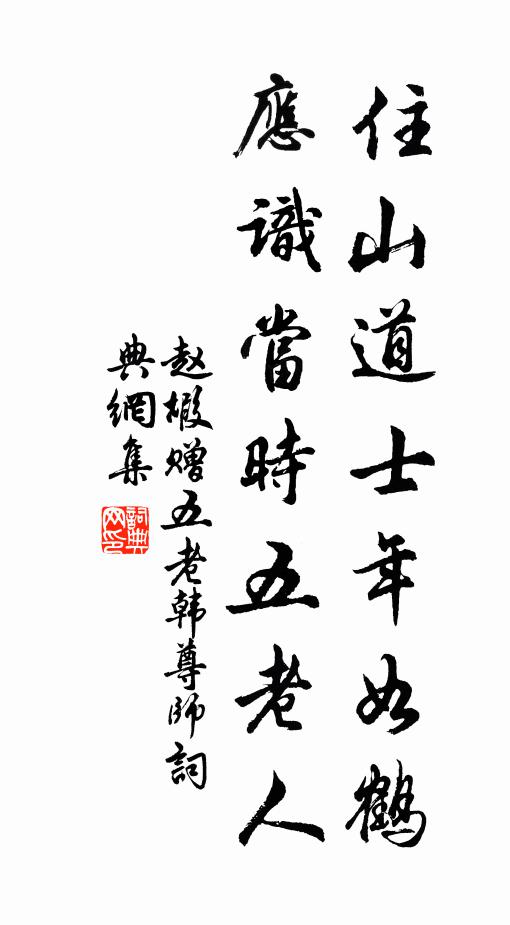 住山道士年如鶴
應識當時五老人
赵嘏赠五老韩尊師詞
典網集
詞典網印